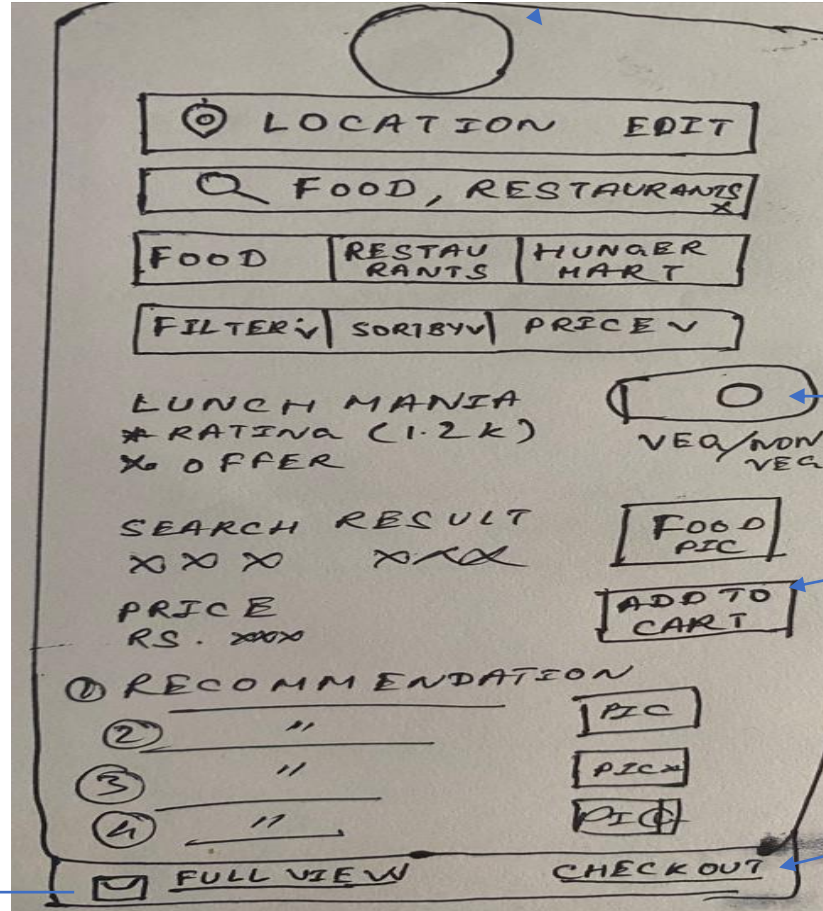 LOCATION EDIT
FOOD, RESTAURANTS
x
FOOD
RESTAU
RANTS
HUNGER
MART
FILTER SORTBY PRICE
LUNCH MANIA
* RATING (1.2K)
% OFFER
VEG/NON
VEG
SEARCH RESULT
xxx xxx
FOOD
PIC
PRICE
RS. xxxx
ADD TO
CART
① RECOMMENDATION
② " PIC
③ " PIC
④ " PIC
FULL VIEW CHECKOUT